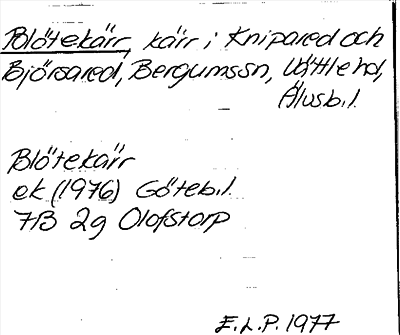 Blötekärr, kärr i Knipared och
Björsared, Bergumssn, Vättlehd,
Älvsb.l.
Blötekärr
ek (1976) Göteb.l.
7B 2g Olofstorp
E.L.P. 1977